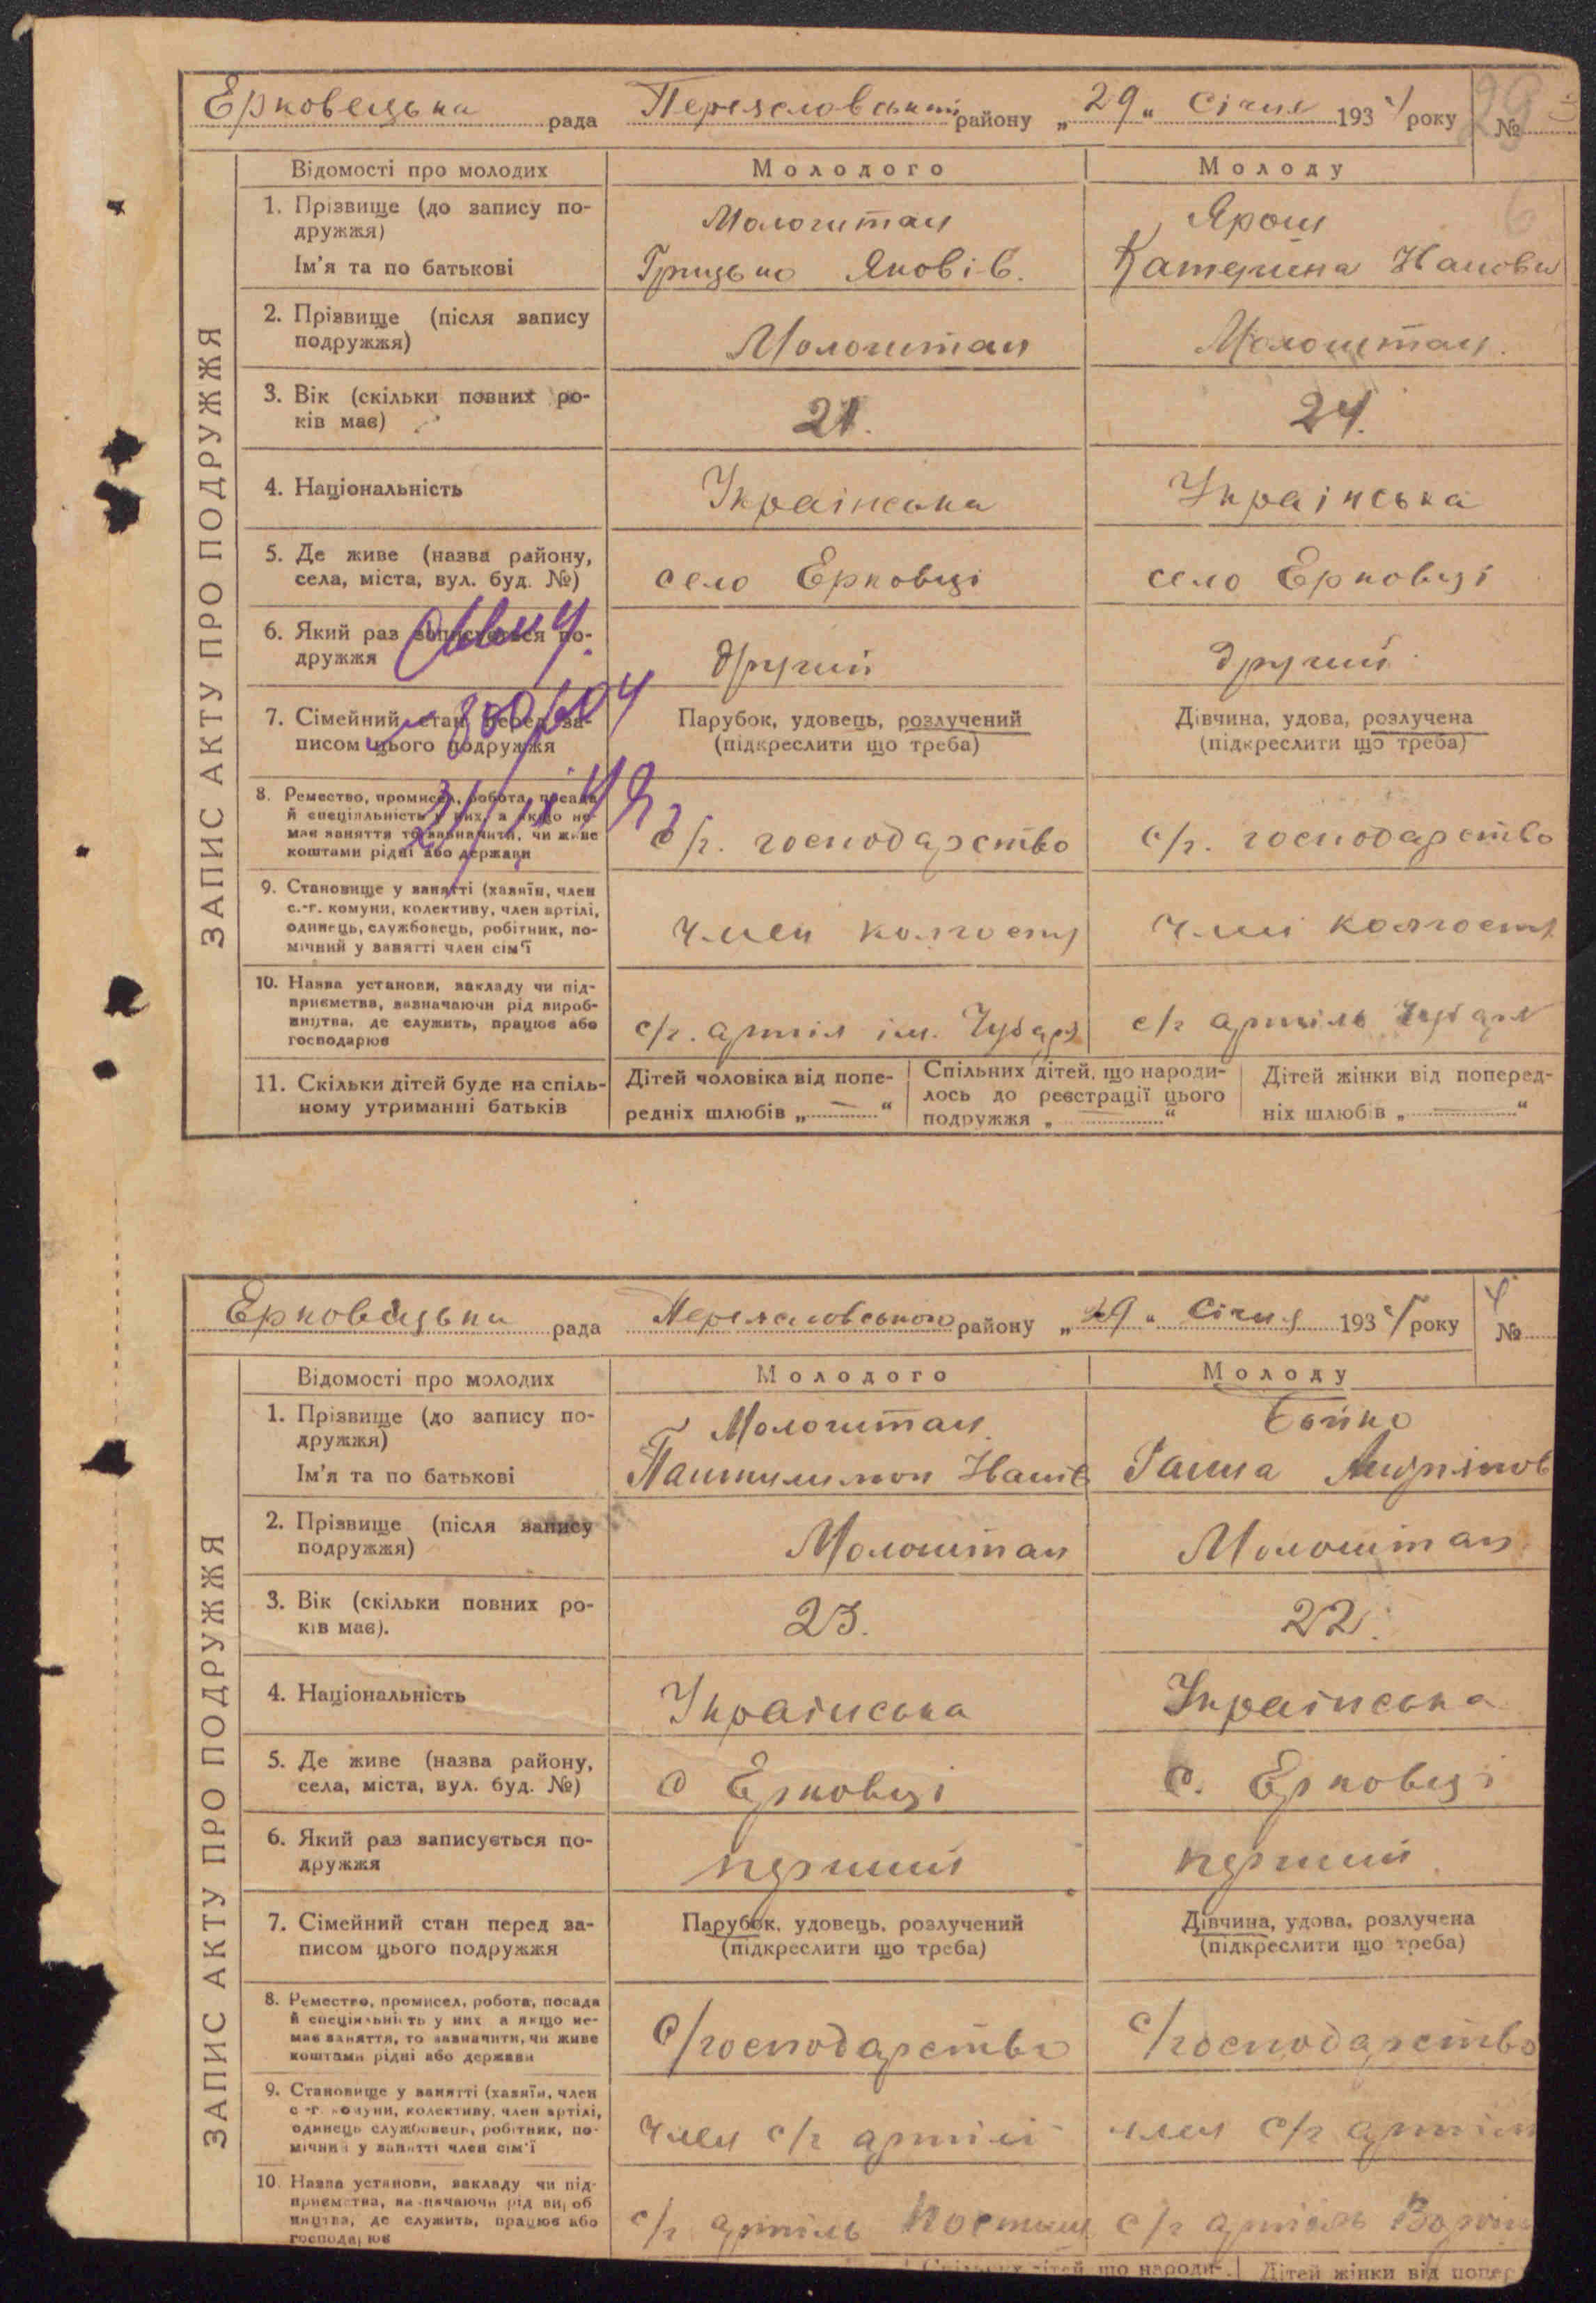 Ерковецька рада Переяславський району „29“ Січня 1934 року №
ЗАПИС АКТУ ПРО ПОДРУЖЖЯ
Відомості про молодих Молодого Молоду
1. Прізвище (до запису по-
дружжя)
Молоштан Ярош
Ім'я та по батькові Грицько Яковів. Катерина
2. Прізвище (після запису
подружжя)
Молоштан Молоштан.
3. Вік (скільки повних ро-
ків має)
21. 24.
4. Національність Українська Українська
5. Де живе (назва району,
села, міста, вул. буд. №)
село Ерковці село Ерковці
6. Який раз записується по-
дружжя
другий другий
7. Сімейний стан перед за-
писом цього подружжя
Парубок, удовець, розлучений
(підкреслити що треба)
Дівчина, удова, розлучена
(підкреслити що треба)
8. Ремество, промисел, робота, посада
й спеціяльність у них, а якщо не-
має заняття то зазначити, чи живе
коштами рідні або держави
с/г. господарство с/г. господарство
9. Становище у занятті (хазяїн, член
с.-г. комуни, колективу, член артілі,
одинець, службовець, робітник, по-
мічний у занятті член сім'ї
член колгоспу колгоспу
10. Назва установи, закладу чи під-
приємства, зазначаючи рід вироб-
ництва, де служить, працює або
господарює
с/г. артіл ім. Чубаря с/г артіль Чубаря
11. Скільки дітей буде на спіль-
ному утриманні батьків
Дітей чоловіка від попе-
редніх шлюбів „—“
Спільних дітей, що народи-
лось до реєстрації цього
подружжя „—“
Дітей жінки від поперед-
ніх шлюбів „—“
Ерковецька рада Переяславського району „29“ Січня 1934 року № 4
ЗАПИС АКТУ ПРО ПОДРУЖЖЯ
Відомості про молодих Молодого Молоду
1. Прізвище (до запису по-
дружжя)
Молоштан. Бойко
Ім'я та по батькові Ганна
2. Прізвище (після запису
подружжя)
Молоштан Молоштан
3. Вік (скільки повних ро-
ків має).
23. 22.
4. Національність Українська Українська
5. Де живе (назва району,
села, міста, вул. буд. №)
с Ерковці с. Ерковці
6. Який раз записується по-
дружжя
перший перший
7. Сімейний стан перед за-
писом цього подружжя
Парубок, удовець, розлучений
(підкреслити що треба)
Дівчина, удова, розлучена
(підкреслити що треба)
8. Ремество, промисел, робота, посада
й спеціяльність у них а якщо не-
має заняття, то зазначити, чи живе
коштами рідні або держави
с/господарство с/господарство
9. Становище у занятті (хазяїн, член
с-г. комуни, колективу, член артілі,
одинець службовець, робітник, по-
мічний у занятті член сім'ї
член с/г артілі член с/г артілі
10. Назва установи, закладу чи під-
приємства, зазначаючи рід вироб
ництва, де служить, працює або
господарює
с/г артіль с/г артіль
Спільних дітей що народи- Дітей жінки від попер